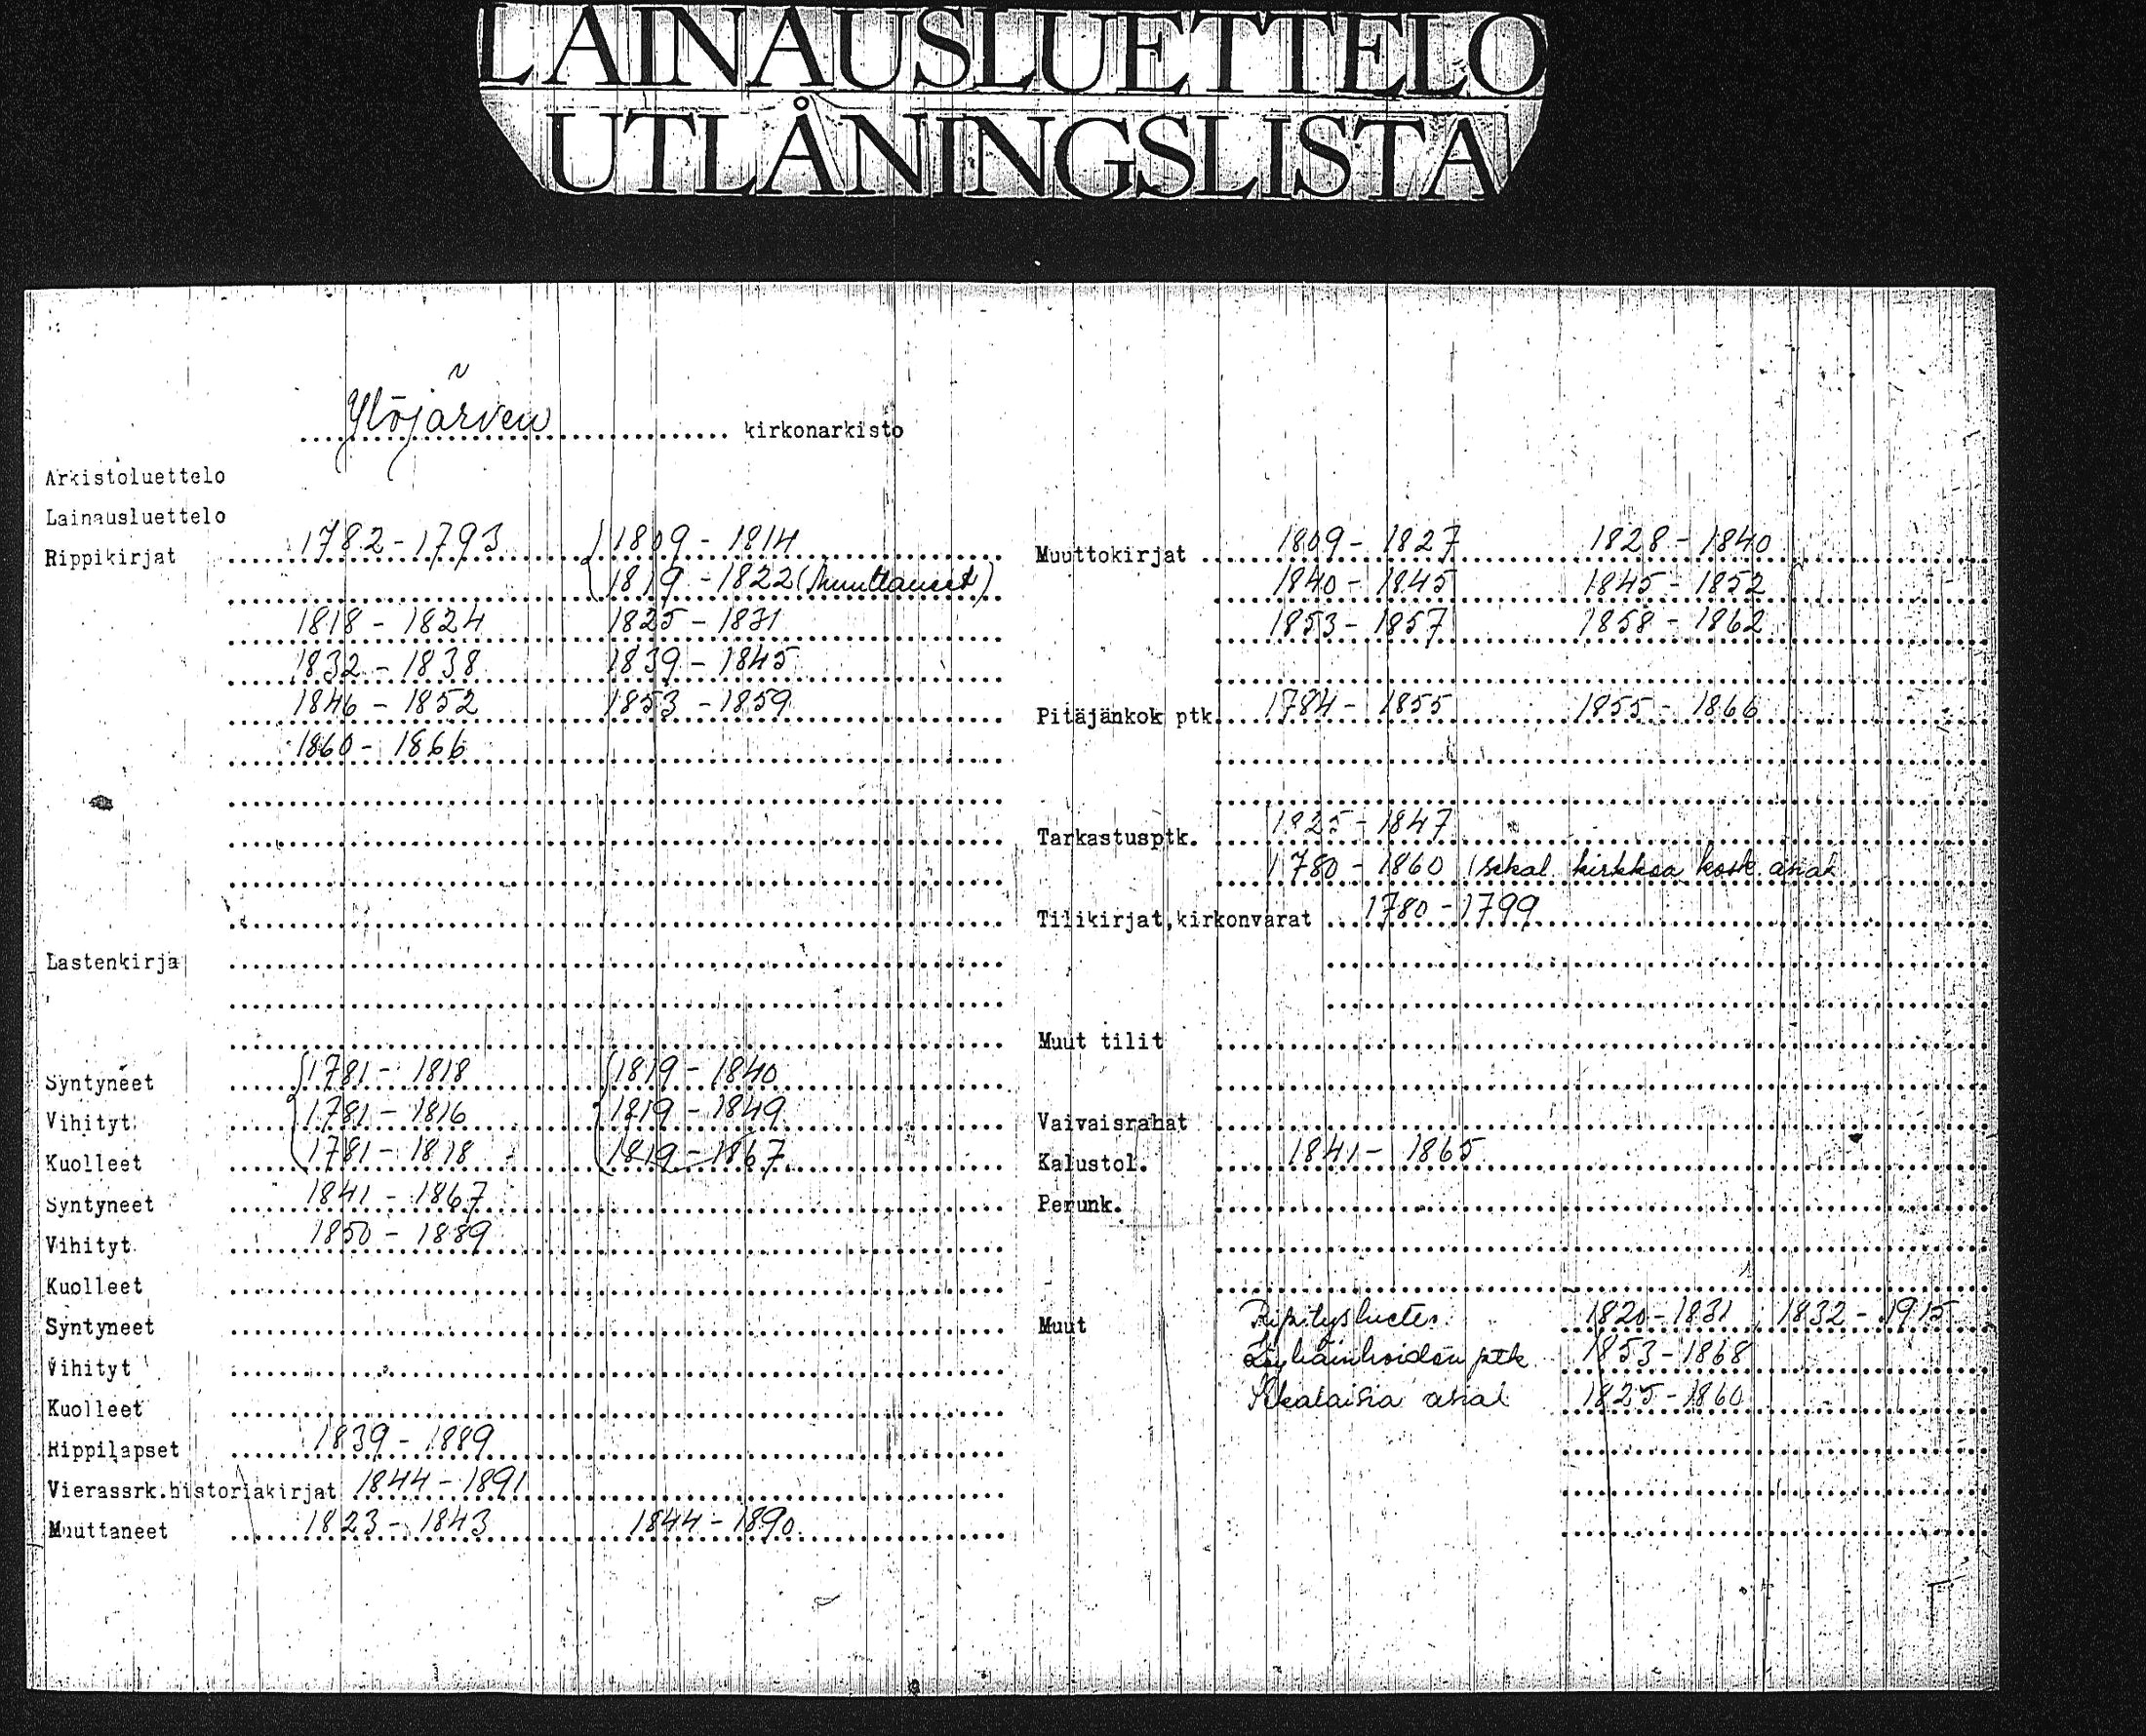 LAINAUSLUETTELO
UTLÅNINGSLISTA
Ylöjärven kirkonarkisto
Arkistoluettelo
Lainausluettelo
Rippikirjat 1782-1793 1809-1814
1819-1822 (Muuttaneet)
1818-1824 1825-1831
1832-1838 1839-1845
1846-1852 1853-1859
1860-1866
Lastenkirja
Syntyneet 1781-1818 1819-1840
Vihityt 1781-1816 1819-1849
Kuolleet 1781-1818 1819-1867
Syntyneet 1841-1867
Vihityt 1850-1889
Kuolleet
Syntyneet
Vihityt
Kuolleet
Rippilapset 1839-1889
Vierassrk.historiakirjat 1844-1891
Muuttaneet 1823-1843 1844-1890
Muuttokirjat 1809-1827 1828-1840
1840-1845 1845-1852
1853-1857 1858-1862
Pitäjänkok ptk. 1784-1855 1855-1866
Tarkastusptk. 1825-1847
1780-1860 (sekal. kirkkoa kosk. asiat
Tilikirjat, kirkonvarat 1780-1799
Muut tilit
Vaivaisrahat
Kalustol. 1841-1865
Perunk.
Muut 1820-1831, 1832-1915
ptk 1853-1868
Sekalaisia asiat 1825-1860